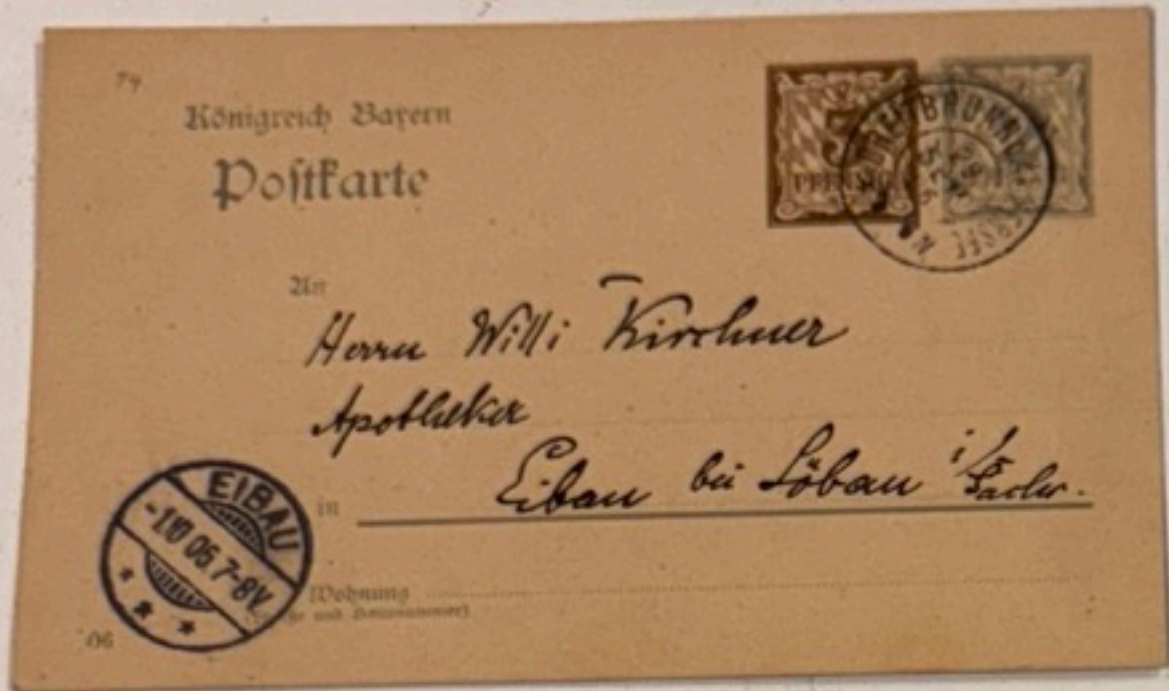 74
Königreich Bayern
Postkarte
3
PFENNIG
An
Herrn Willi Kirchner
Apotheker
in Eibau bei Löbau i/Sachs.
EIBAU
-1.10 06.7-8V.
Wohnung
(Straße und Hausnummer)
06